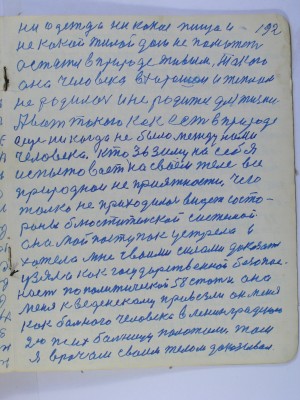 ни одежда ни какая пища и - 192
не какой жилой дом не поможет
остатся в природе живым, такого
она человека в хорошом и теплом
не родила и не родит для жизни.
А вот такого как есть в природе
еще никогда не было между нами
человека. Кто зв зиму на себя
испытовает на своем теле все
природной не приятности, чего
только не приходилося видеть со сто-
роны блюстительской системой.
она мой поступок устрела и
хотела мне своими силами доказать
узяла как государственной безопас-
ност по политической 58 статьи она
меня к веденскому привезли он меня
как больного человека в ленинградскую
2ю псих больницу положили там
Я врачам своим телом доказовал